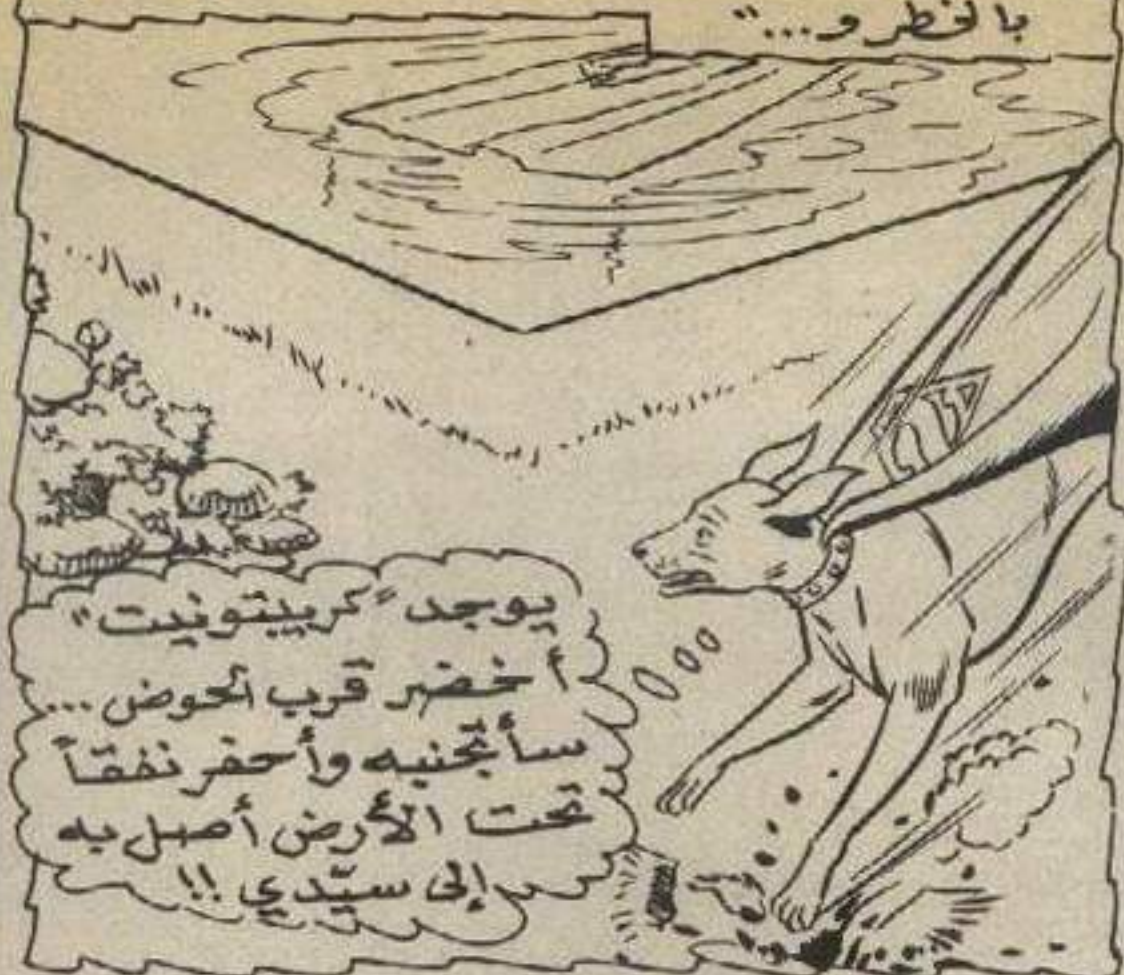 بالخطر و..."
يوجد "كريبتونيت"
أخضر قرب الحوض...
سأتجنبه وأحفر نفقاً
تحت الأرض أصل به
إلى سيّدي !!